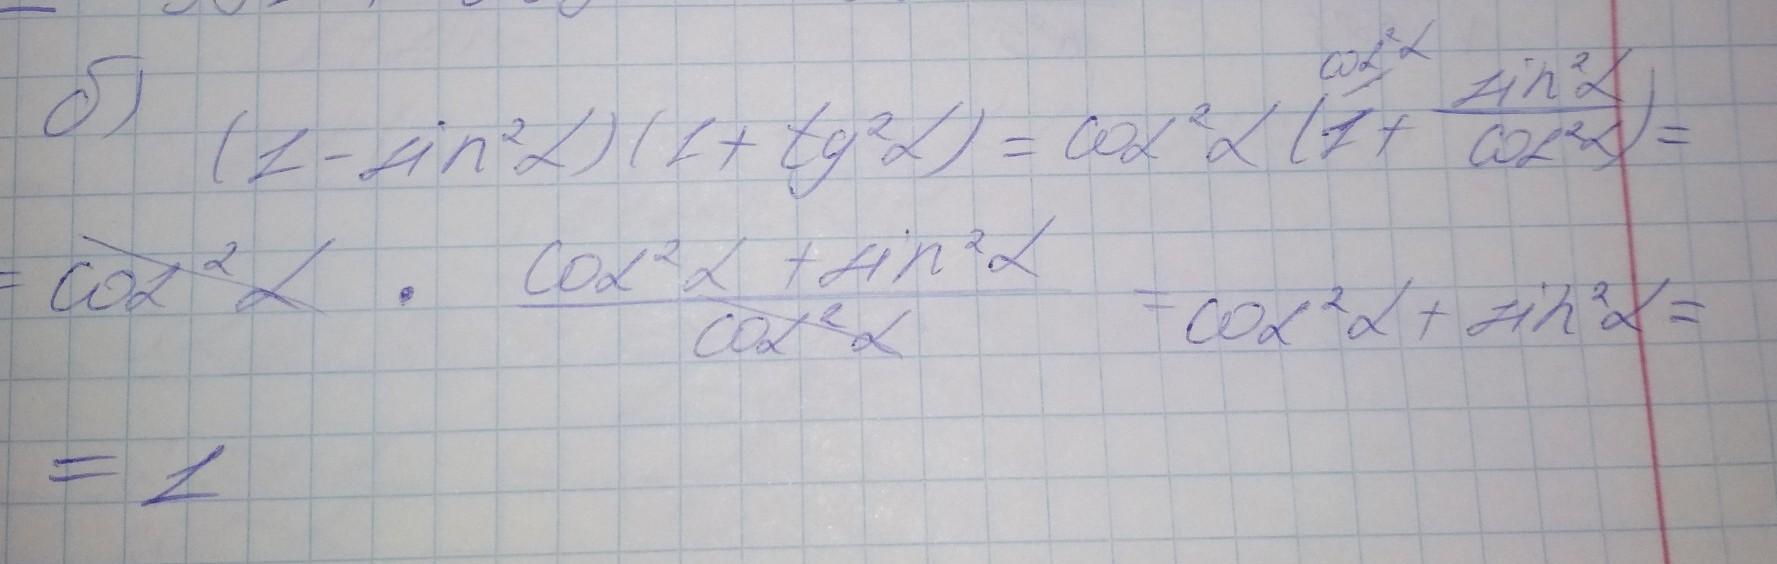 б) (1 - sin²α)(1 + tg²α) = cos²α (1 + sin²α / cos²α) =
cos²α
= cos²α · (cos²α + sin²α) / cos²α = cos²α + sin²α =
= 1